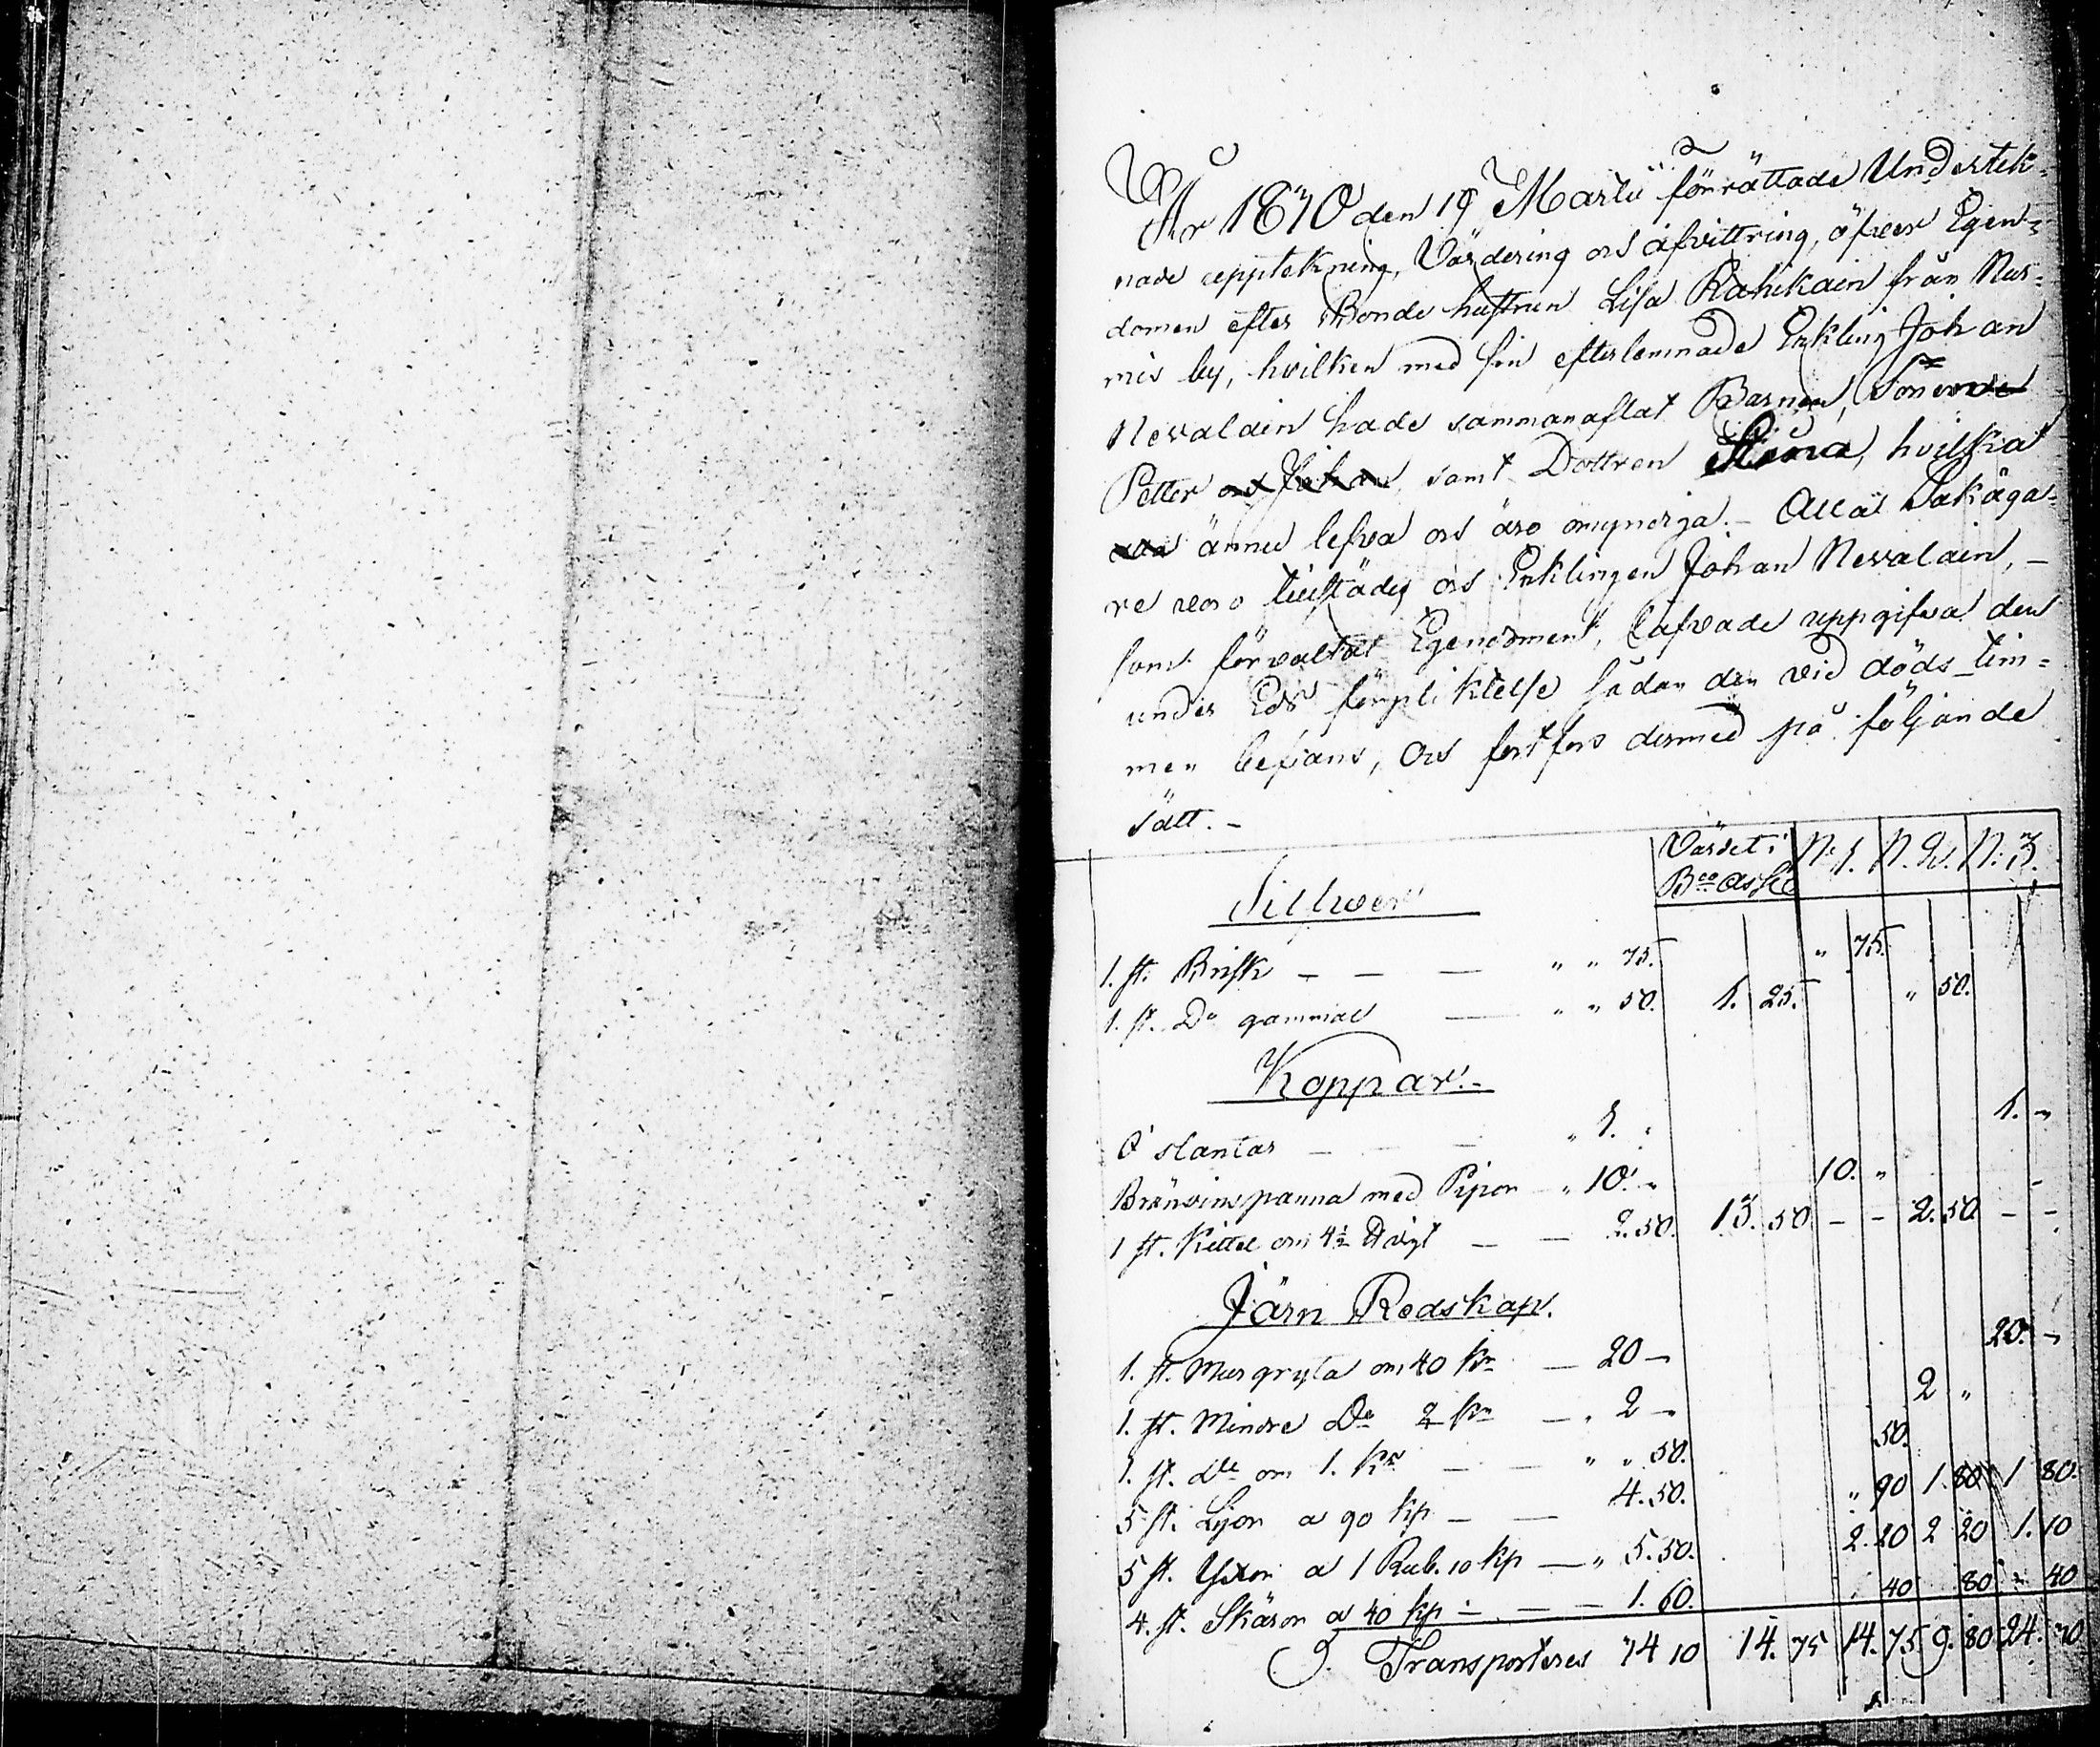 År 1810 den 19 Martii förrättade Undertek-
nade upptekning, Värdering och afvittring, öfver Egen-
domen efter Bonde hustrun Lisa Rahikain från Nur-
mis by, hvilken med sin efterlemnade Enkling Johan
Nevalain hade sammanaflat Barnen, Sonen
Petter och Johan samt Dottren Stina, hvilka
ännu lefva och äro omyndiga. - Alla Sakäga-
re voro tillstädes och Enklingen Johan Nevalain, -
som förvaltat Egendomen, lafvade uppgifva den
under Eds förpliktelse sådan den vid döds-tim-
men befans, och fortfors dermed på följande
sätt. -
Värdet i N. 1. N. 2. N. 3.
Bco Assig
Silfwer
1. st. Brisk - - - " " 75. " 75.
1. st. Do gammal - " " 50. 1. 25. " 50.
Koppar. -
slantar - - - " 1. " 1. "
Bränvinspanna med Pipor - " 10. " 10. "
1 st. Kittel om 4½ vigt - - 2.50. 13. 50 - - 2. 50 - -
Järn Redskap.
1. st. Mur gryta om 40 Knr - 20 - 20. -
1. st. Mindre Do 2 Knr - " 2 - 2 "
1. st. do om 1. Knr - - " " 50. 50.
5 st. Lijor a 90 kp - - 4.50. " 90 1. 80 1 80.
5 st. Yxor a 1 Rub. 10 kp - " 5.50. 2. 20 2 20 1. 10
4. st. Skäror a 40 kp - - - 1. 60. 40 80 " 40
Transporteres 14 10 14. 75 14. 75 9. 80 24. 30